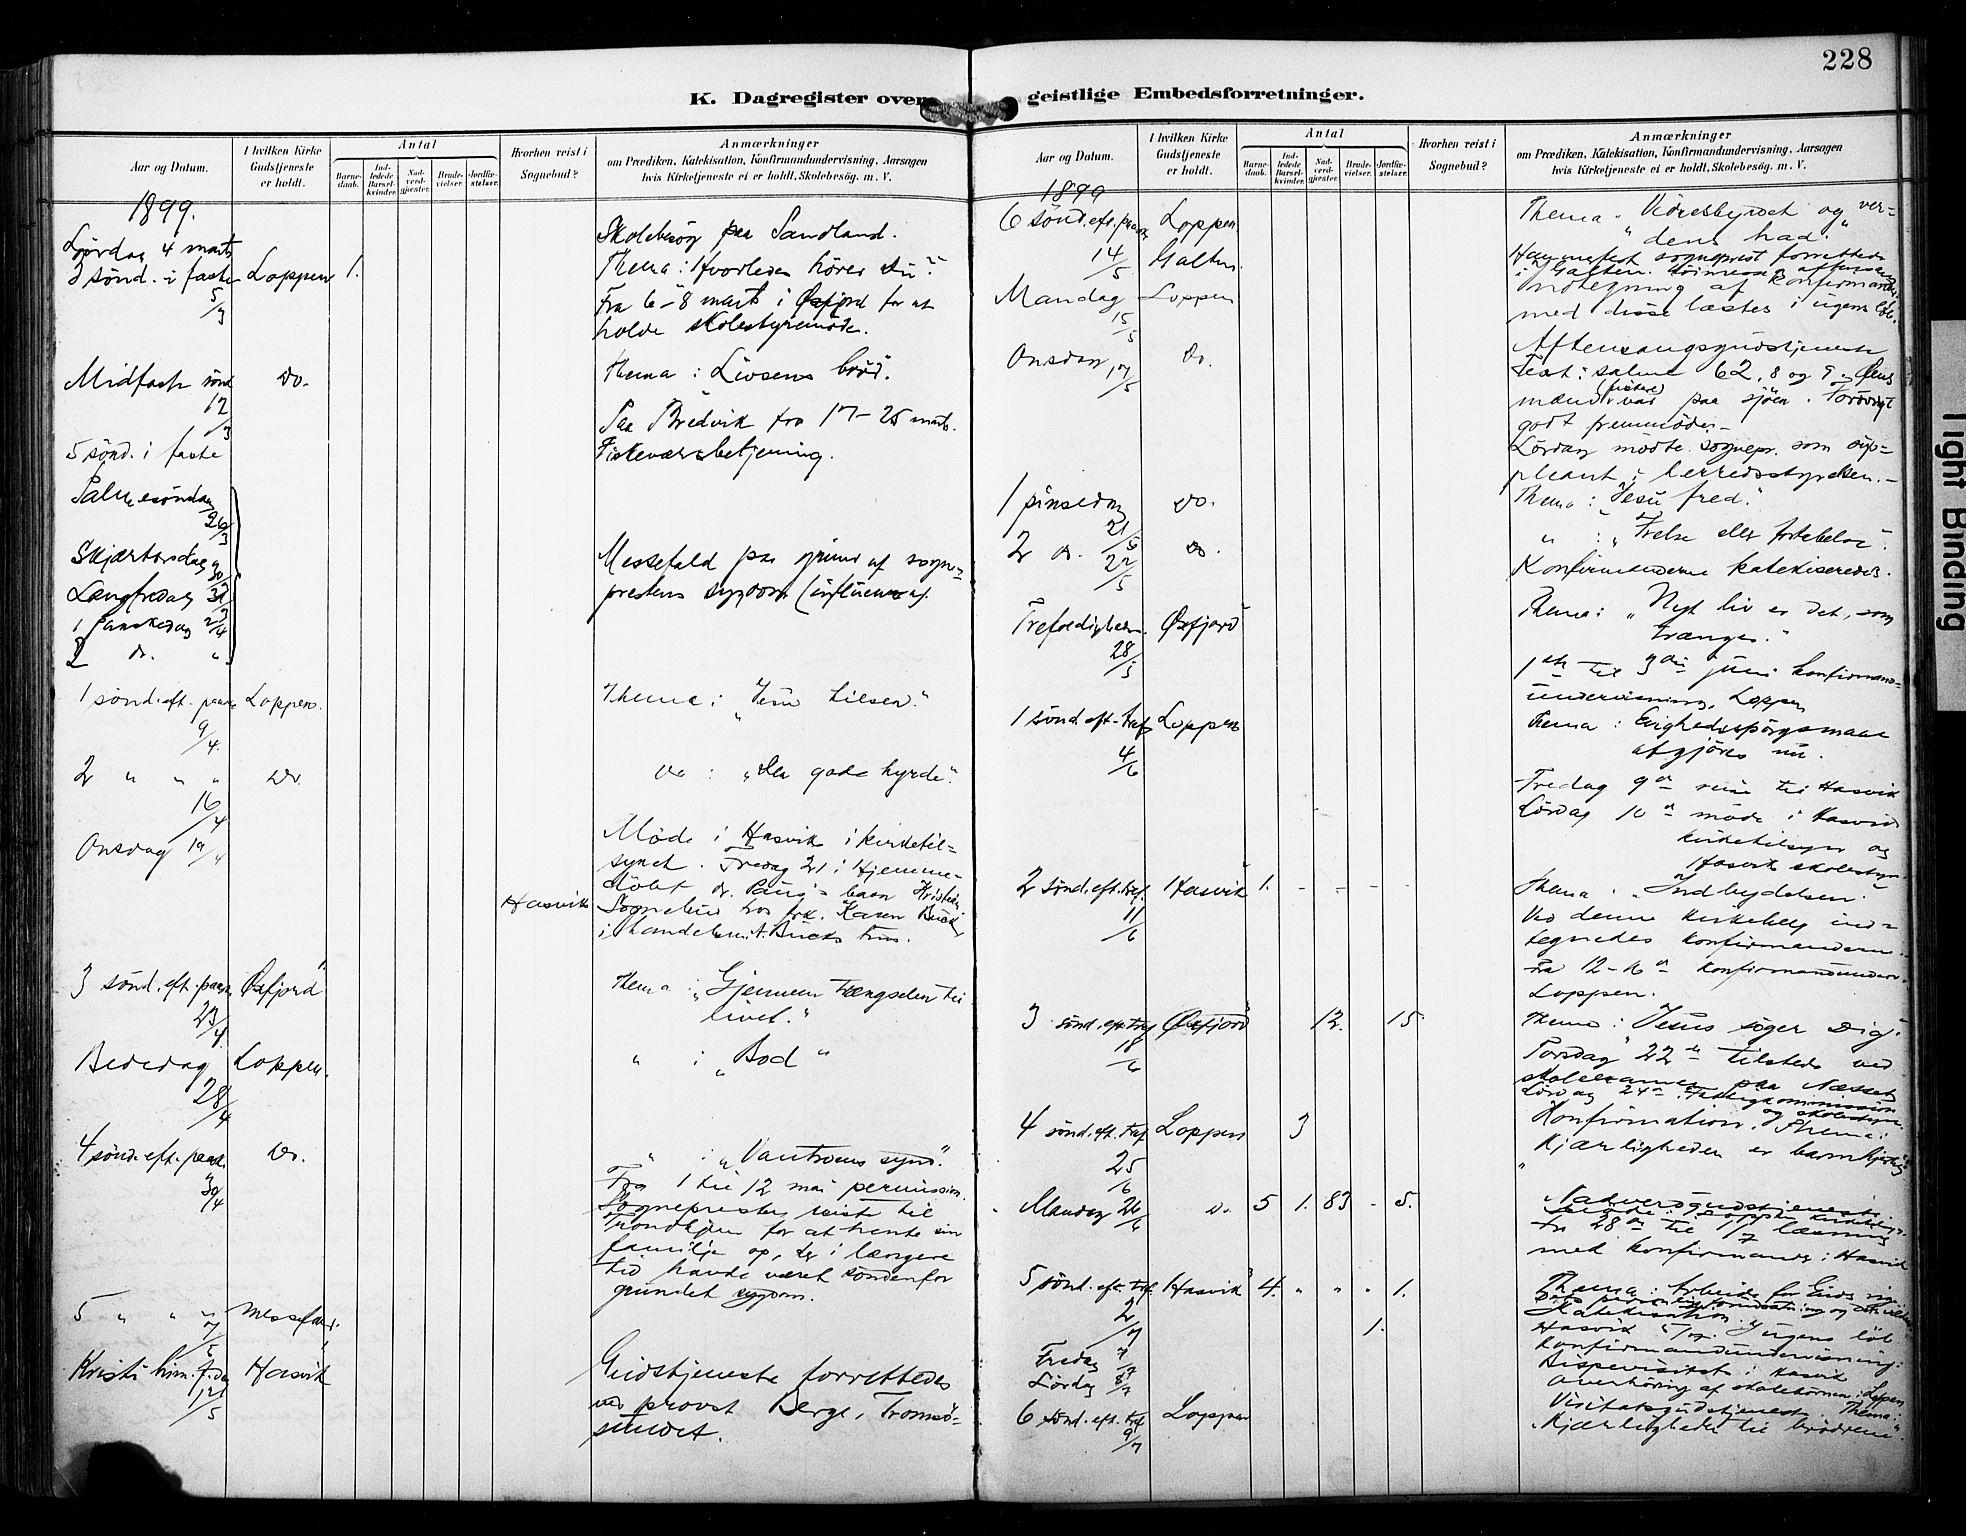 228
K. Dagregister over geistlige Embedsforretninger.
Aar og Datum.
I hvilken Kirke Gudstjeneste er holdt.
Antal
Barnedaab.
Indledede Barselkvinder.
Nadverdgjester.
Brudevielser.
Jordfæstelser.
Hvorhen reist i Sognebud?
Anmærkninger
om Prædiken, Katekisation, Konfirmandundervisning, Aarsagen
hvis Kirketjeneste ei er holdt, Skolebesög. m. V.
1899.
Lørdag 4 marts Skolebesøg paa Sandland.
3 sønd. i faste Loppen 1. Thema: "Hvorledes hører Du?"
5/3 Fra 6-8 marts i Øxfjord for at
holde skolestyremøde.
Midfaste sønd Do. Thema: "Livsens brød".
12/3
Paa Bredvik fra 17-25 marts.
5 sønd. i faste Fiskeværsbetjening.
Palmesøndag 26/3
Skjærtorsdag 30/3 Messefald paa grund af sogne=
Langfredag 31/3 prestens sygdom (influenza).
1 Paaskedag 2/4
2 do. "
1 sønd. eft. paaske Loppen. Thema: "Jesu hilsen."
9/4
2 " " " Do. Do: "Den gode hyrde".
16/4
Onsdag 19/4 Møde i Hasvik i kirketil=
synet. Fredag 21 i Hjemme=
døbt
Hasvik Sognebud hos frk. Karen Buck
i handelsm. A. Bucks hus.
3 sønd. eft. paaske Øxfjord Thema: "Gjennem trængselen til
23/4 livet."
Bededag Loppen. " : "Bod"
28/4
4 sønd. eft. paaske Do. " : "Vantroens synd".
30/4 Fra 1 til 12 mai permission.
Sognepresten reiste til
Trondhjem for at hente sin
familje op, der i længere
tid havde været søndenfor
grundet sygdom.
5 " " " Messefald.
7/5
Kristi him. f. dag Hasvik Gudstjeneste forrettedes
ved provst Berge, Tromsø=
sundet.
Aar og Datum.
I hvilken Kirke Gudstjeneste er holdt.
Antal
Barnedaab.
Indledede Barselkvinder.
Nadverdgjester.
Brudevielser.
Jordfæstelser.
Hvorhen reist i Sognebud?
Anmærkninger
om Prædiken, Katekisation, Konfirmandundervisning, Aarsagen
hvis Kirketjeneste ei er holdt, Skolebesög. m. V.
1899
6 sønd. eft. paaske Loppen Thema: "Vidnesbyrdet og ver=
dens had."
14/5 Galten. Hammerfest sogneprest forrettede
i Galten.
Mandag Loppen Indtegning af konfirmander
15/5 med disse læstes i ugens løb.
Onsdag 17/5 Do. Aftensangsgudstjeneste
Text: salme 62, 8 og 9.
mænd (fiskere) var paa sjøen.
godt fremmøde.
Lørdag mødte sognepr. som sup=
pleant i herredsstyrelsen.
1 pinsedag Do. Thema: "Jesu fred."
21/5
2 do. Do. " : "Frelse eller fortabelse".
22/5 Konfirmanderne katekiseredes.
Trefoldigheds. Øxfjord Thema: "Nyt liv er det, som
28/5 trænges."
1ste til 3die juni konfirmand=
undervisning, Loppen
1 sønd. eft. tref Loppen Thema: Evighedsspørgsmaal
4/6 afgjøres nu.
Fredag 9de reise til Hasvik
Lørdag 10de møde i Hasvik
kirketilsyn og
Hasvik skolestyre
2 sønd. eft. tref. Hasvik 1. - - - - Thema: "Indbydelsen."
11/6 Ved denne kirkehelg ind=
tegnedes konfirmanderne.
Fra 12-16de konfirmandunderv.
Loppen.
3 sønd. eft. tref Øxfjord 12. 15 Thema: "Jesus søger Dig".
18/6 Torsdag 22de tilstede ved
skoleexamen paa Næsset
Lørdag 24de Fattigkommission
og skolestyre
4 sønd. eft. tref Loppen 3 Konfirmation. Thema:
25/6 "Kjærligheden er barmhjertig"
Mandag 26/6 Do. 5 1. 83 - 5. Nadverdgudstjeneste
Fra 28de til 1/7 læsning
med konfirmander i Hasvik
5 sønd. eft. tref. Hasvik 4. " " " 1. Thema: Arbeide for Guds rige
2/7 1. Katekisation. I ugens løb
konfirmandundervisning.
Fredag 7/7 Bispevisitats i Hasvik
Lørdag 8/7 Overhøring af skolebørnene i Loppen
6 sønd. eft. tref Loppen Visitatsgudstjeneste. Thema:
9/7 "Kjærligheden til brødrene".
Tight Binding